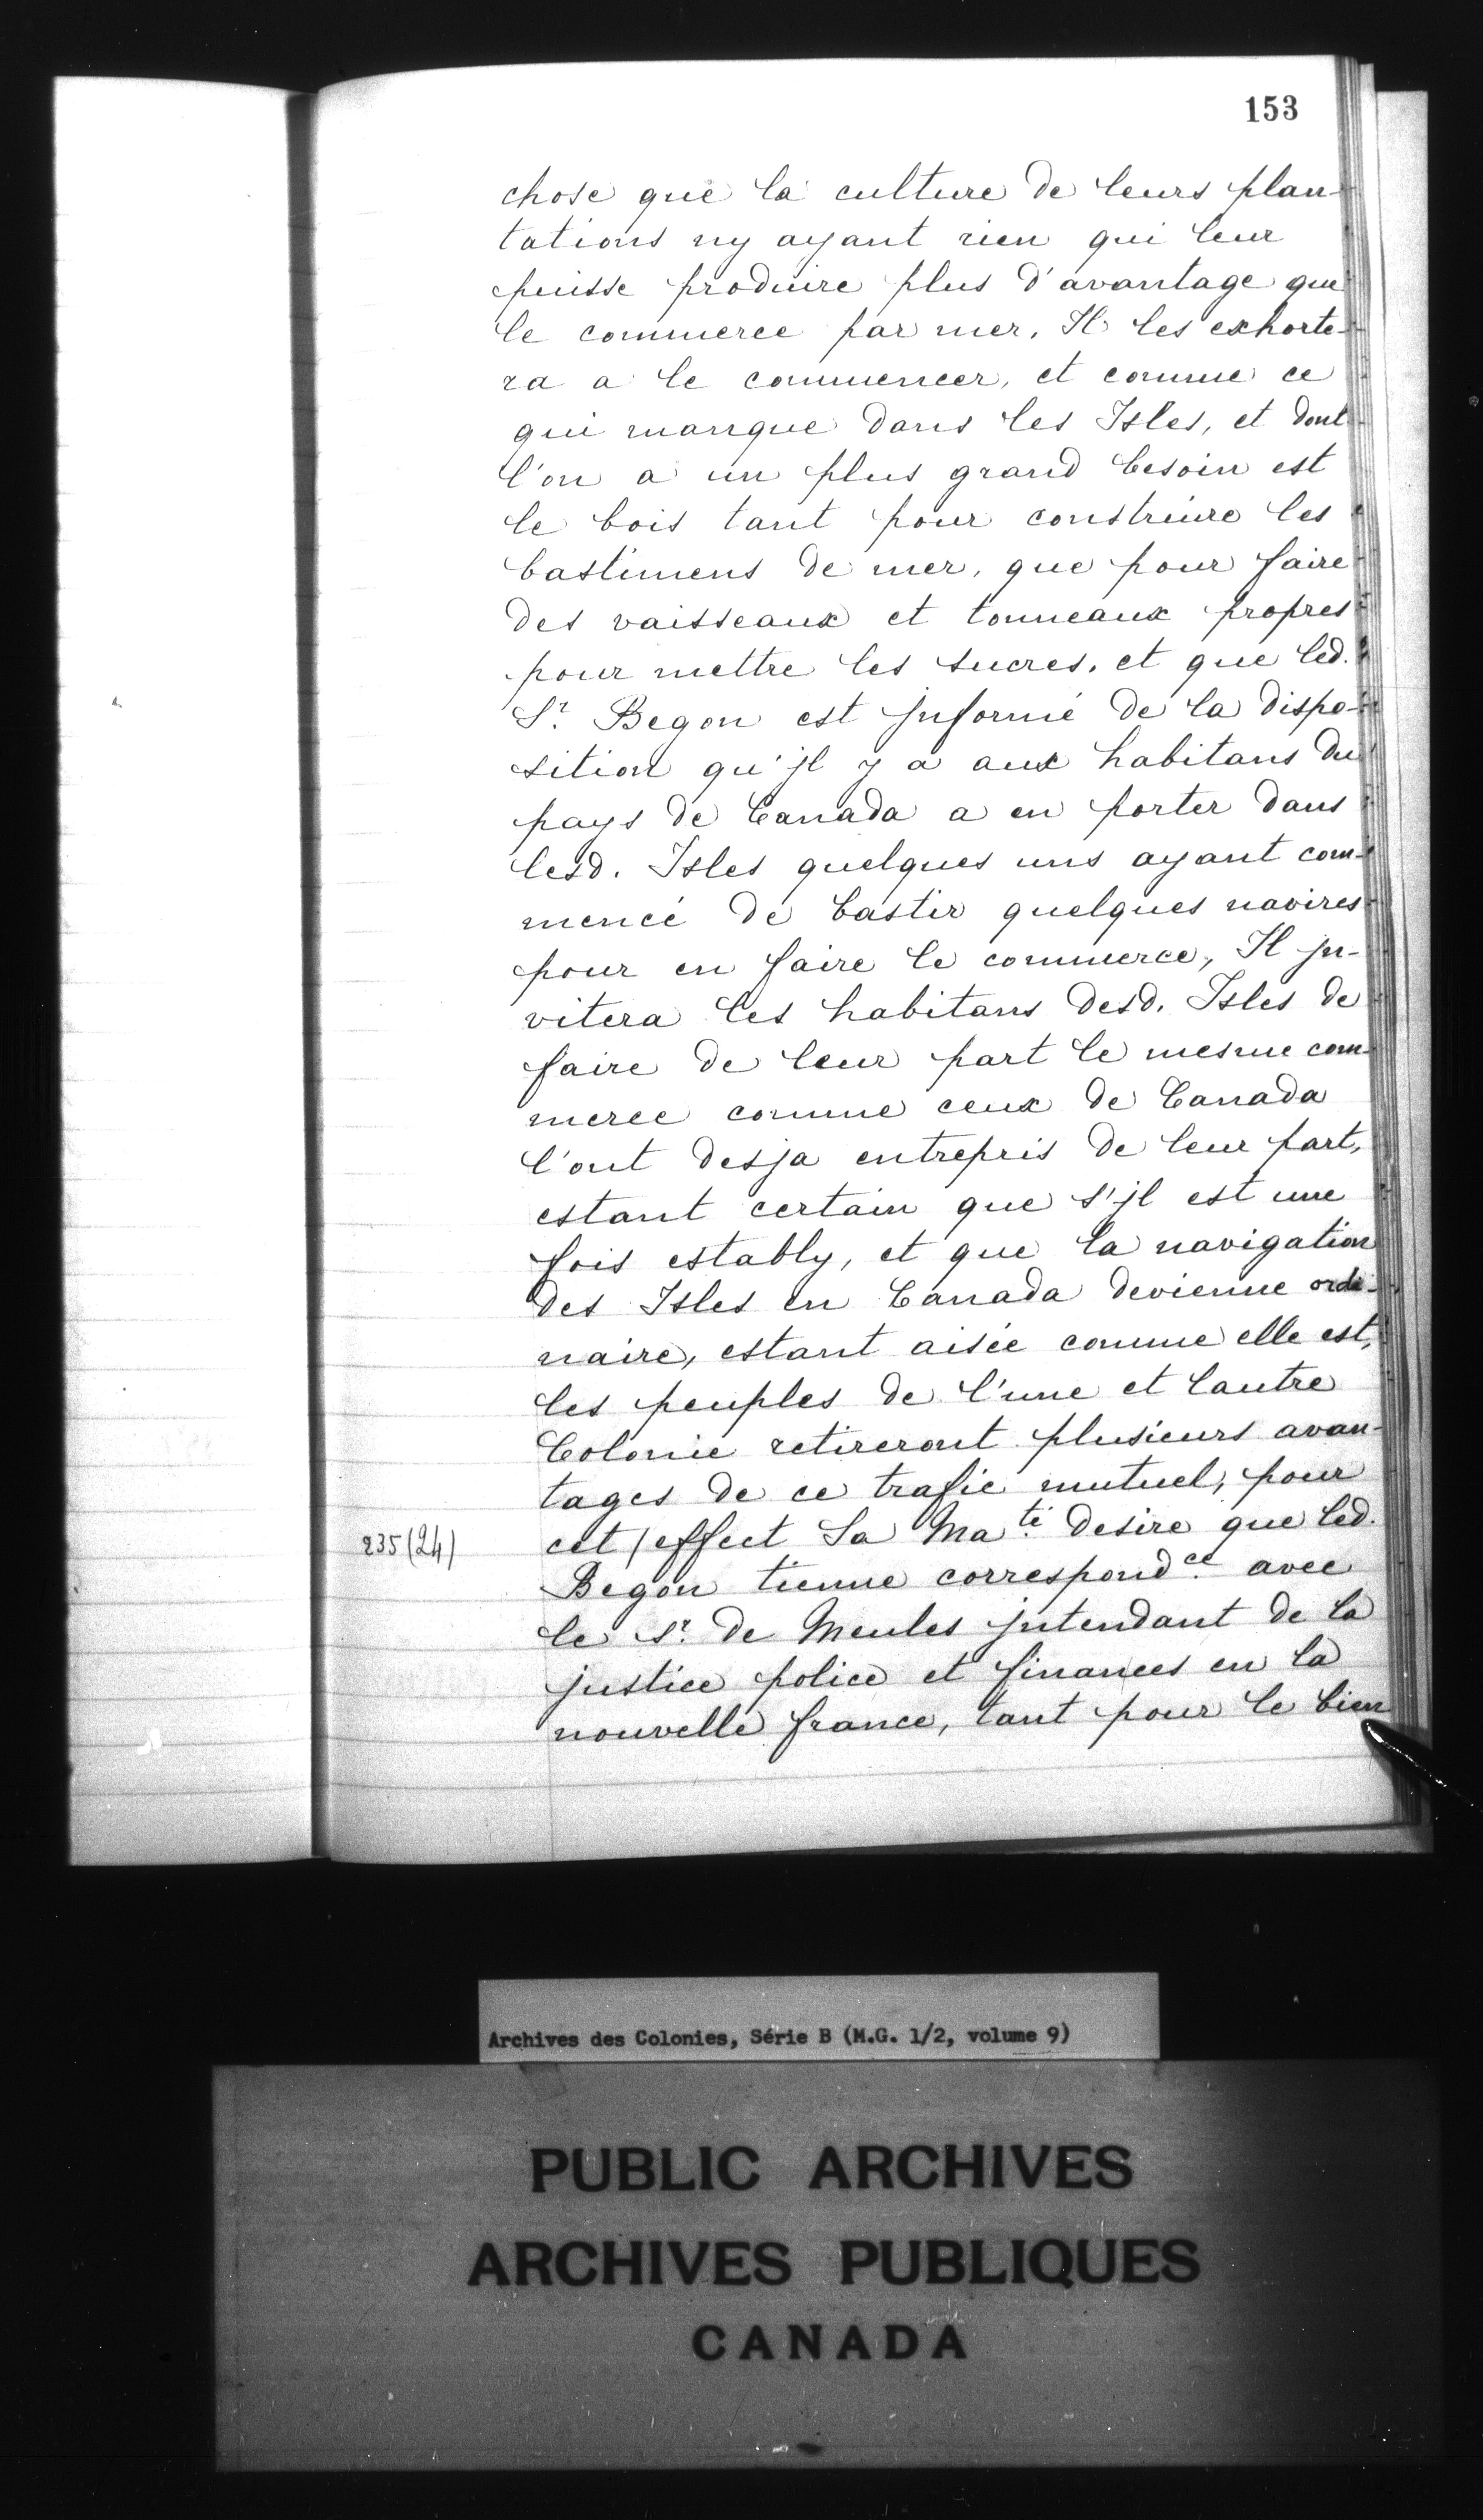 153
chose que la culture de leurs plan-
tations ny ayant rien qui leur
puisse produire plus d'avantage que
le commerce par mer, Il les exhorte-
ra a le commencer, et comme ce
qui manque dans les Isles, et dont
l'on a un plus grand besoin est
le bois tant pour construire les
bastimens de mer, que pour faire
des vaisseaux et tonneaux propres
pour mettre les sucres, et que led.
Sr. Begon est jnformé de la dispo-
sition qu'jl y a aux habitans du
pays de Canada a en porter dans
lesd. Isles quelques uns ayant com-
mencé de bastir quelques navires
pour en faire le commerce, Il jn-
vitera les habitans desd. Isles de
faire de leur part le mesme com-
merce comme ceux de Canada
l'ont desja entrepris de leur part,
estant certain que s'jl est une
fois estably, et que la navigation
des Isles en Canada devienne ordi-
naire, estant aisée comme elle est,
les peuples de l'une et lautre
Colonie retireront plusieurs avan-
tages de ce trafic mutuel, pour
235 (24) cet / effect Sa Maté. desire que led.
Begon tienne correspondce. avec
le sr. de Meules jntendant de la
justice police et finances en la
nouvelle france, tant pour le bien
Archives des Colonies, Série B (M.G. 1/2, volume 9)
PUBLIC ARCHIVES
ARCHIVES PUBLIQUES
CANADA